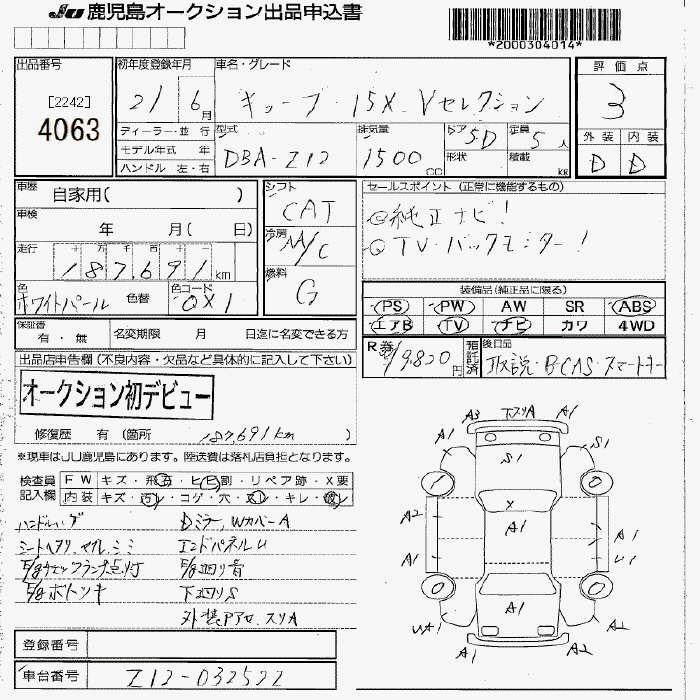 JU 鹿児島オークション出品申込書
*2000304014*
出品番号
[2242]
4063
初年度登録年月
21 6月
車名・グレード
キューブ・15X Vセレクション
評価点
3
ディーラー・並 行
モデル年式 年
ハンドル 左・右
型式
DBA-Z12
排気量
1500 cc
ドア 5D
形状
定員 5人
積載 kg
外装 内装
D D
車歴
自家用( )
車検
年 月( 日)
走行
十 万 千 百 十 一
187,691 km
色
ホワイトパール 色替
色コード
QX1
シフト
CAT
冷房
AA/C
燃料
G
セールスポイント (正常に機能するもの)
◎純正ナビ!
◎TV・バックモニター!
装備品(純正品に限る)
PS PW AW SR ABS
エアB TV ナビ カワ 4WD
保証書
有 ・ 無
名変期限 月 日迄に名変できる方
R券 ¥9,820円
預託済
後日品
取説・BCAS・スマートキー
出品店申告欄(不良内容・欠品など具体的に記入して下さい)
オークション初デビュー
修復歴 有 (箇所 187,691km )
※現車はJU鹿児島にあります。陸送費は落札店負担となります。
検査員記入欄
FW キズ・飛石・ヒビ割・リペア跡・X要
内装 キズ・汚レ・コゲ・穴・スレ・キレ・破レ
Dミラー、WカバーA
エンドパネルU
E/gチェックランプ点灯 E/g廻り音
下廻りS
登録番号
車台番号
Z12-032522
A3 下スリA A1
A1 S1 S1
1 0
X
A2 A1 A1
A1 U1
0 0
WA1 A1 A2
A1 A2